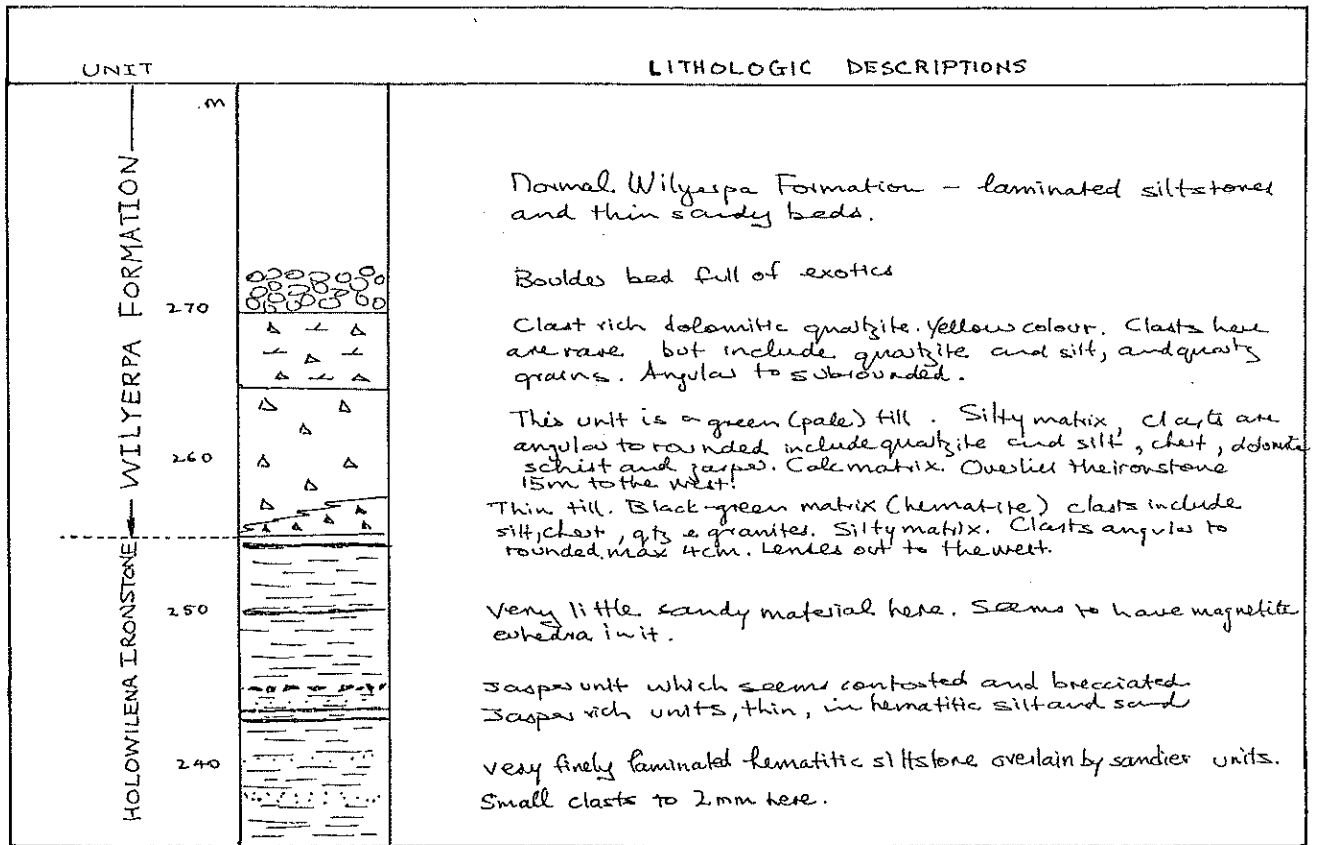 UNIT
LITHOLOGIC DESCRIPTIONS
.m
WILYERPA FORMATION
HOLOWILENA IRONSTONE
270
260
250
240
Normal Wilyerpa Formation - laminated siltstones
and thin sandy beds.
Boulder bed full of exotics
Clast rich dolomitic quartzite. Yellow colour. Clasts here
are rare but include quartzite and silt, and quartz
grains. Angular to subrounded.
This unit is a green (pale) till. Silty matrix, clasts are
angular to rounded include quartzite and silt, chert, dolomite
schist and jasper. Calc matrix. Overlies the ironstone
15m to the west!
Thin till. Black-green matrix (hematite) clasts include
silt, chert, qtz e granites. Silty matrix. Clasts angular to
rounded, max 4cm. Lenses out to the west.
Very little sandy material here. Seems to have magnetite
euhedra in it.
Jasper unit which seems contorted and brecciated
Jasper rich units, thin, in hematitic silt and sand
Very finely laminated hematitic siltstone overlain by sandier units.
Small clasts to 2mm here.